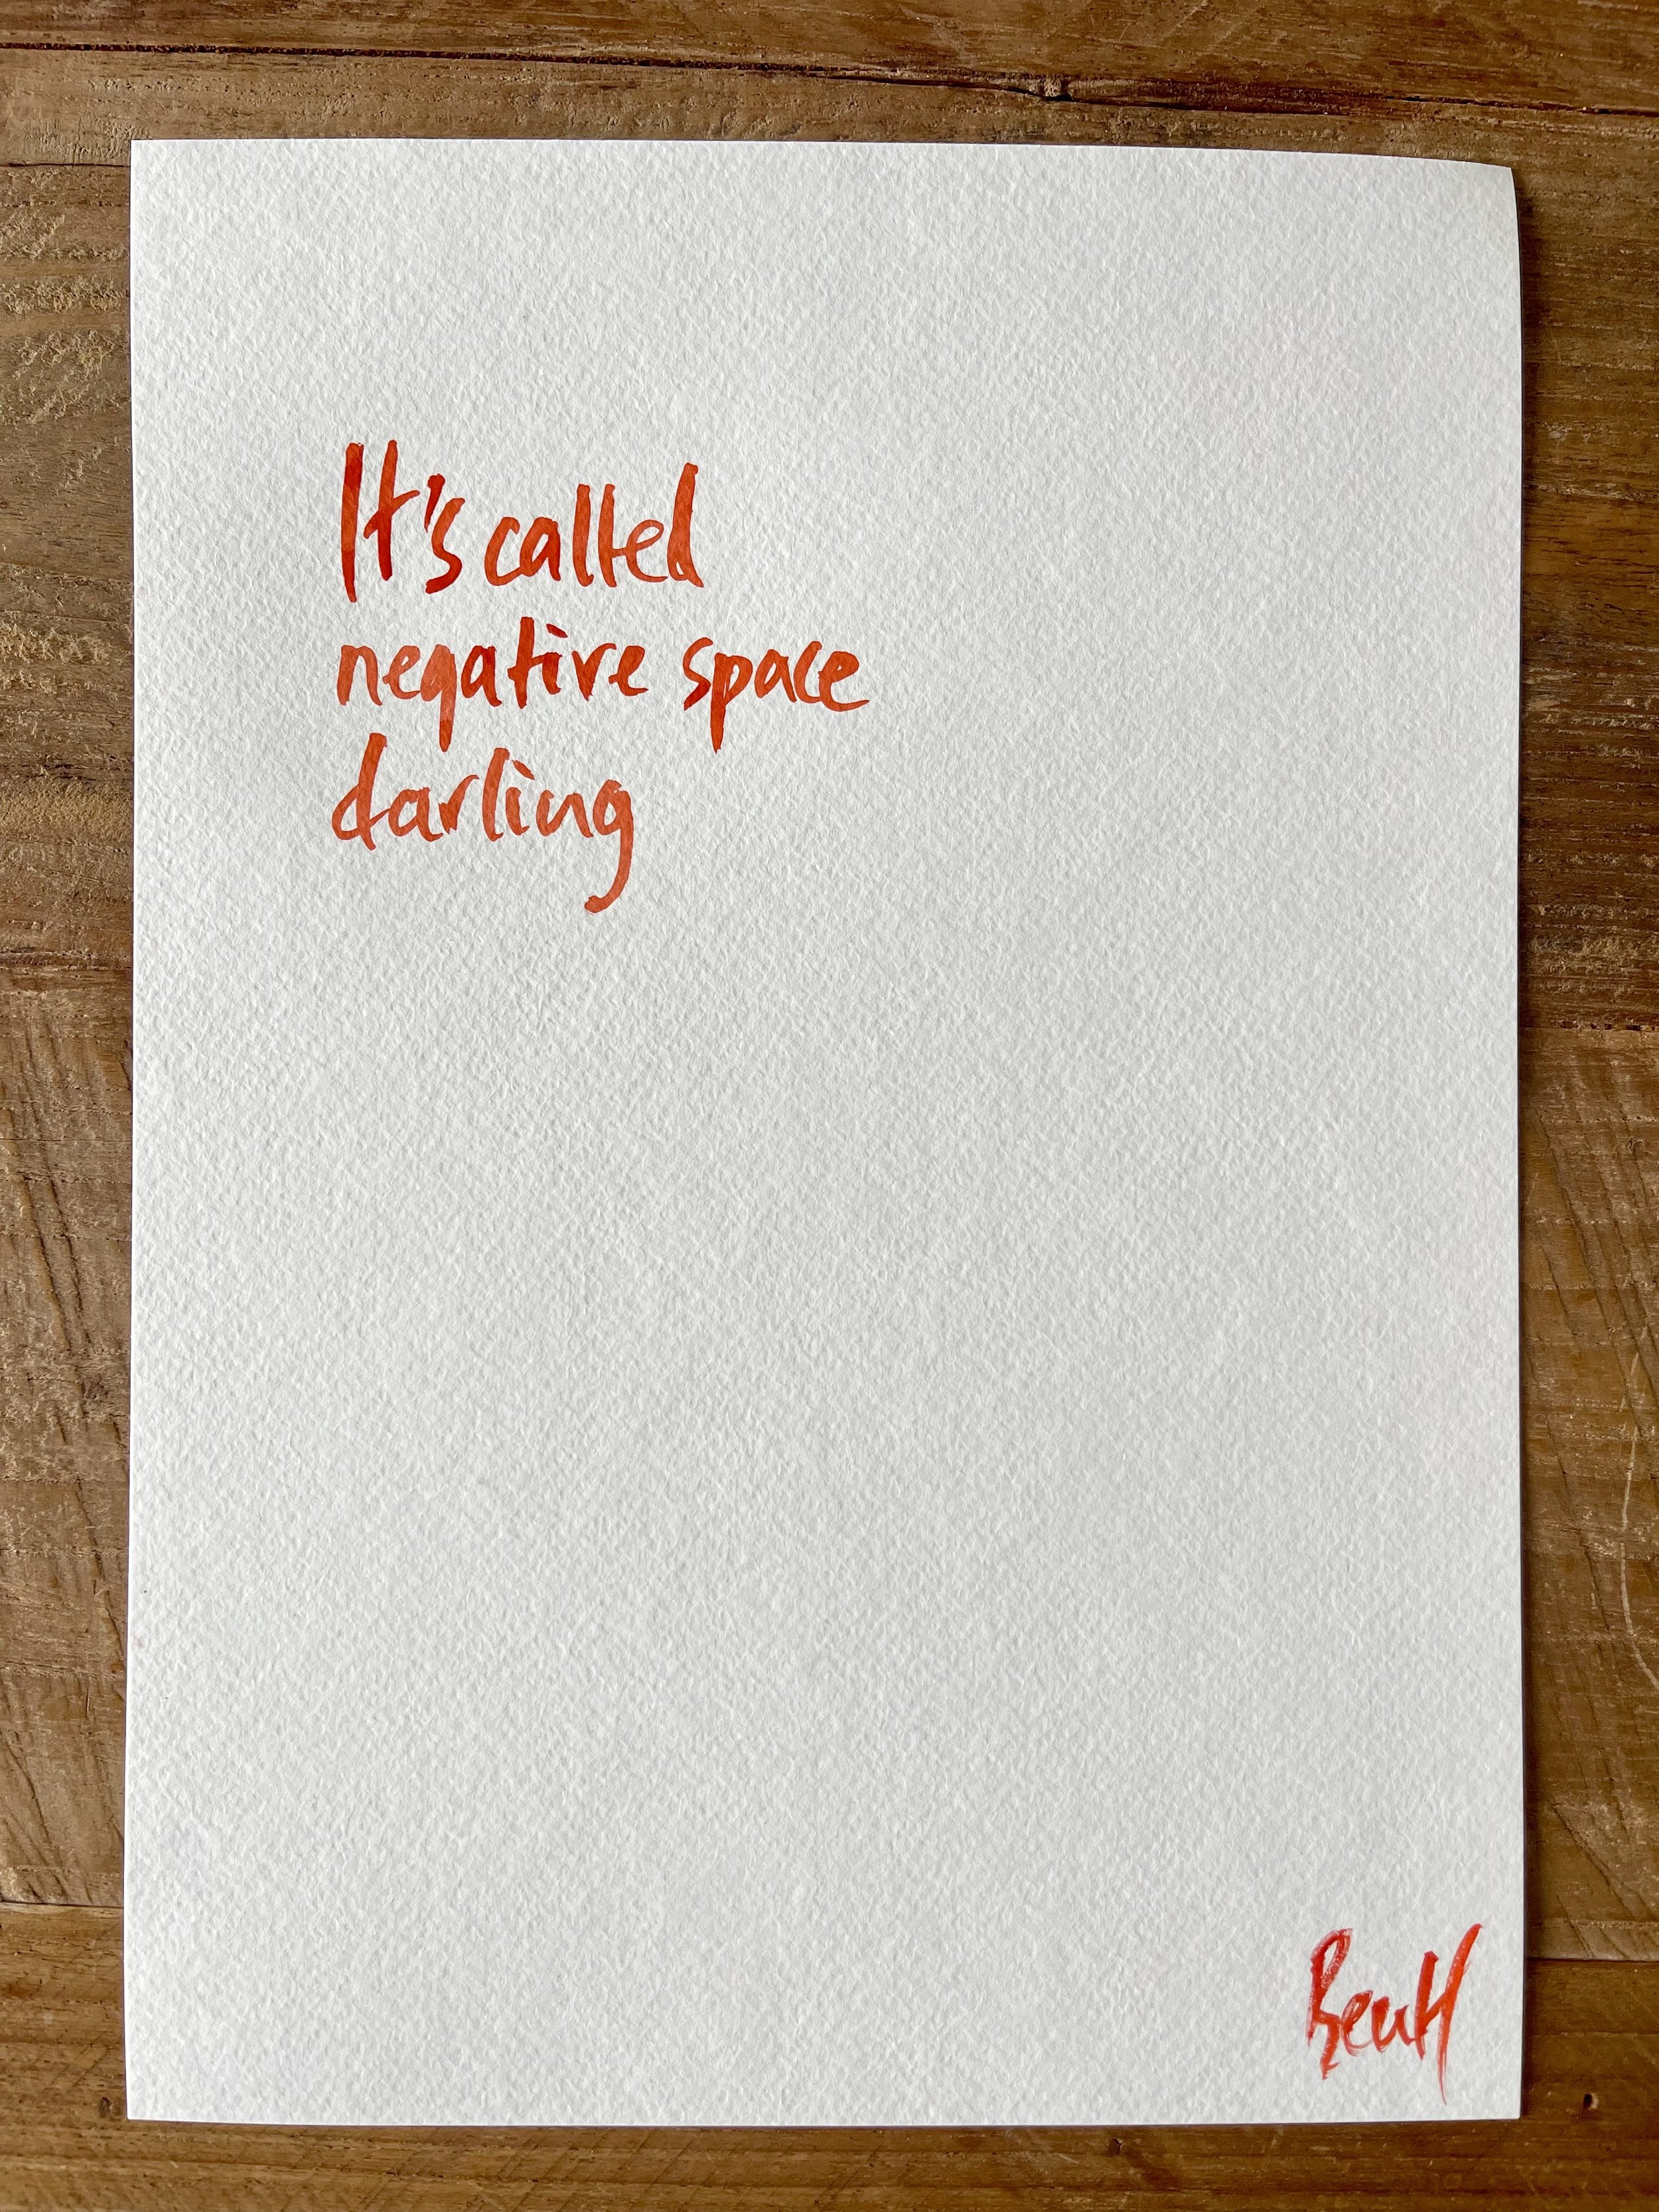 It's called
negative space
darling